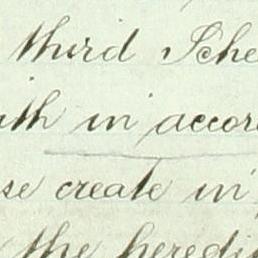 third Sche
ith in accor
se create in
the heredi